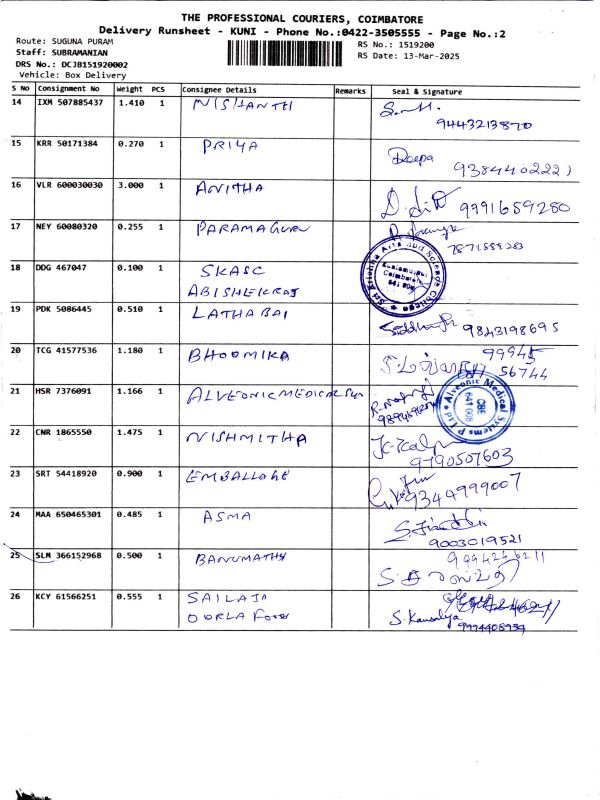 THE PROFESSIONAL COURIERS, COIMBATORE
Delivery Runsheet - KUNI - Phone No.:0422-3505555 - Page No.:2
Route: SUGUNA PURAM
Staff: SUBRAMANIAN
DRS No.: DCJB151920002
Vehicle: Box Delivery
RS No.: 1519200
RS Date: 13-Mar-2025
S No Consignment No Weight PCS Consignee Details Remarks Seal & Signature
14 IXM 507885437 1.410 1 NISHANTH
9443213870
15 KRR 50171384 0.270 1 PRIYA Deepa
9384402221
16 VLR 600030030 3.000 1 ANITHA
9991659280
17 NEY 60080320 0.255 1 PARAMAGURU
18 DDG 467047 0.100 1 SKASC
ABISHEKRAJ
Sri Krishna Arts and Science College
Kuniamuthur
Coimbatore
641 008
19 PDK 5086445 0.510 1 LATHABAI
9843198695
20 TCG 41577536 1.180 1 BHOOMIKA 99945
56744
21 HSR 7376091 1.166 1 ALVEONICMEDICALSYM
Alveonic Medical Systems P Ltd
CBE
641 008
22 CNR 1865550 1.475 1 NISHMITHA
9790507603
23 SRT 54418920 0.900 1 EMBALLAGE
9344999007
24 MAA 650465301 0.485 1 ASMA
9003019521
25 SLM 366152968 0.500 1 BANUMATHY
9994246211
26 KCY 61566251 0.555 1 SAILAJA
OORLA FOOD
S. Kausalya
9994408959